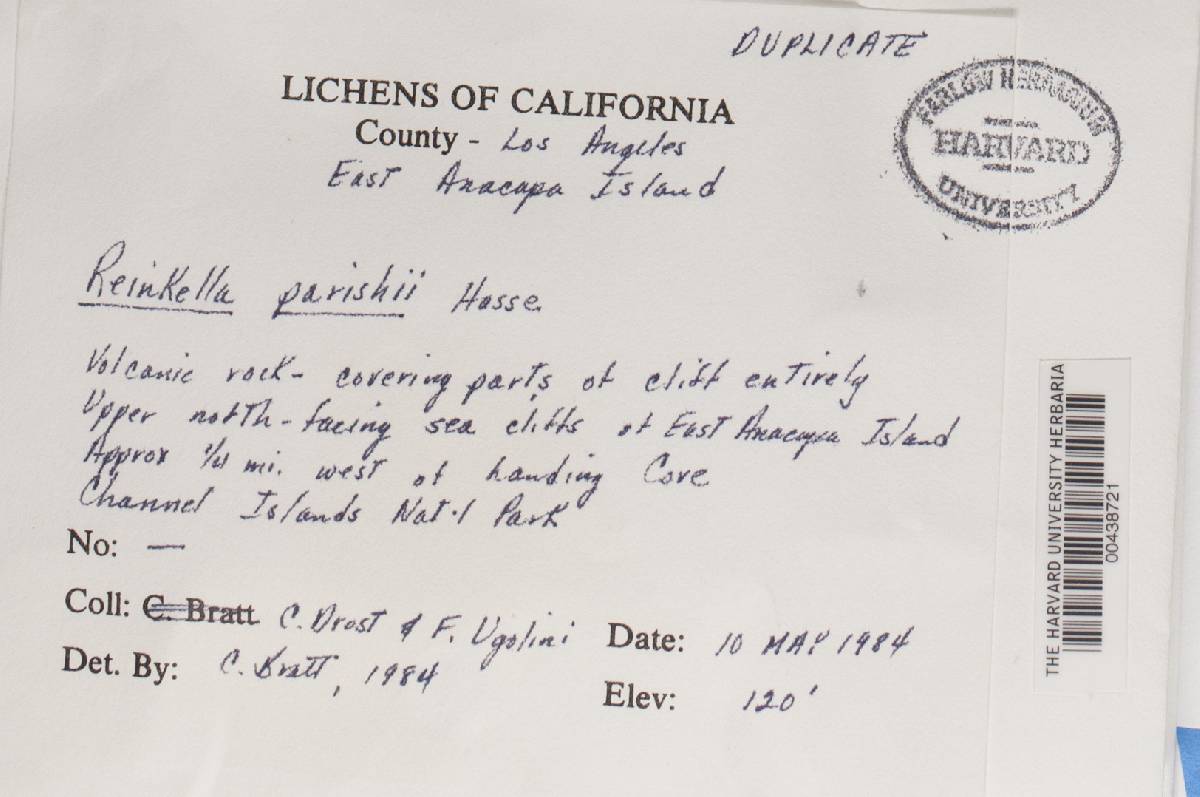 DUPLICATE
LICHENS OF CALIFORNIA
County - Los Angeles
East Anacapa Island
FARLOW HERBARIUM
HARVARD
UNIVERSITY
Reinkella parishii Hasse.
Volcanic rock - covering parts of cliff entirely
Upper north-facing sea cliffs of East Anacapa Island
Approx 1/4 mi. west of Landing Cove
Channel Islands Nat'l Park
No: —
Coll: C. Bratt C. Drost & F. Ugolini
Date: 10 MAY 1984
Det. By: C. Bratt, 1984
Elev: 120'
THE HARVARD UNIVERSITY HERBARIA
00438721